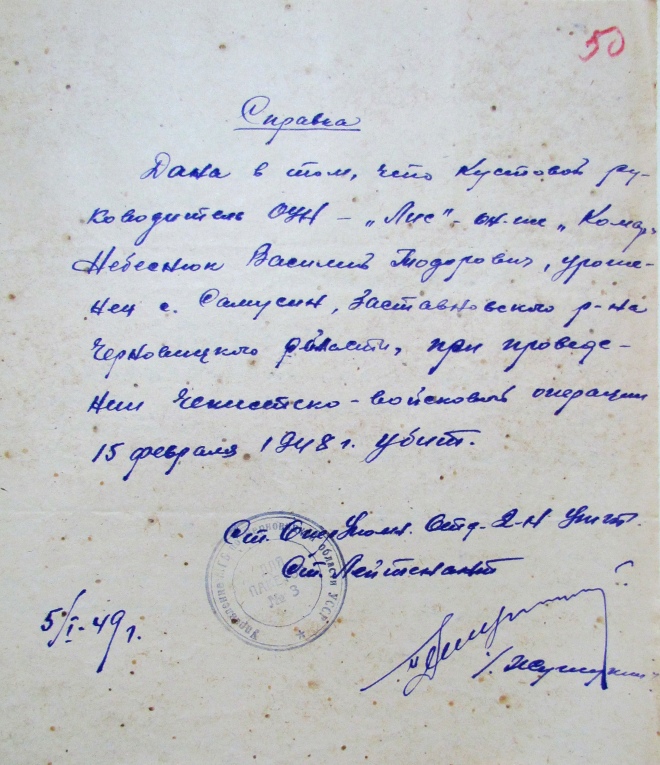 50
Справка
Дана в том, что кустовой ру-
ководитель ОУН – „Лис“ – он-же „Комар“
Небеснюк Василий Тодорович, уроже-
нец с. Самусин, Заставновского р-на
Черновицкого области, при проведе-
нии Чекистско-войсковой операции
15 февраля 1948 г. убит.
Ст. Оперуполн. Отд. 2-Н
Ст. Лейтенант
5/I-49 г.
Управление М.Г.Б. области УССР
№ 3